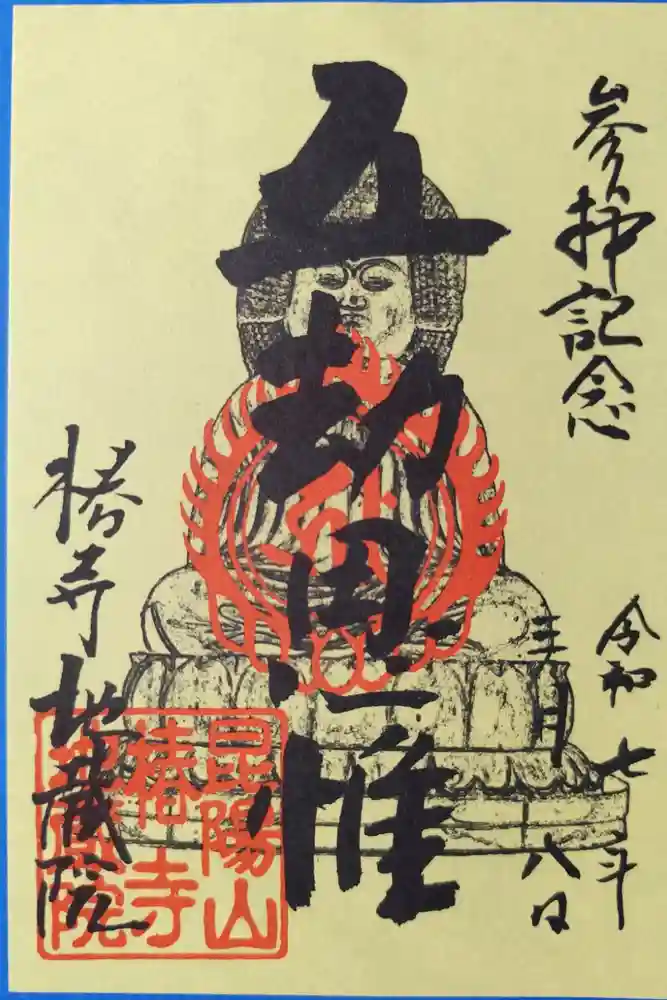 参拝記念
令和七年
三月八日
五劫思惟
椿寺地蔵院
昆陽山
椿寺
地蔵院